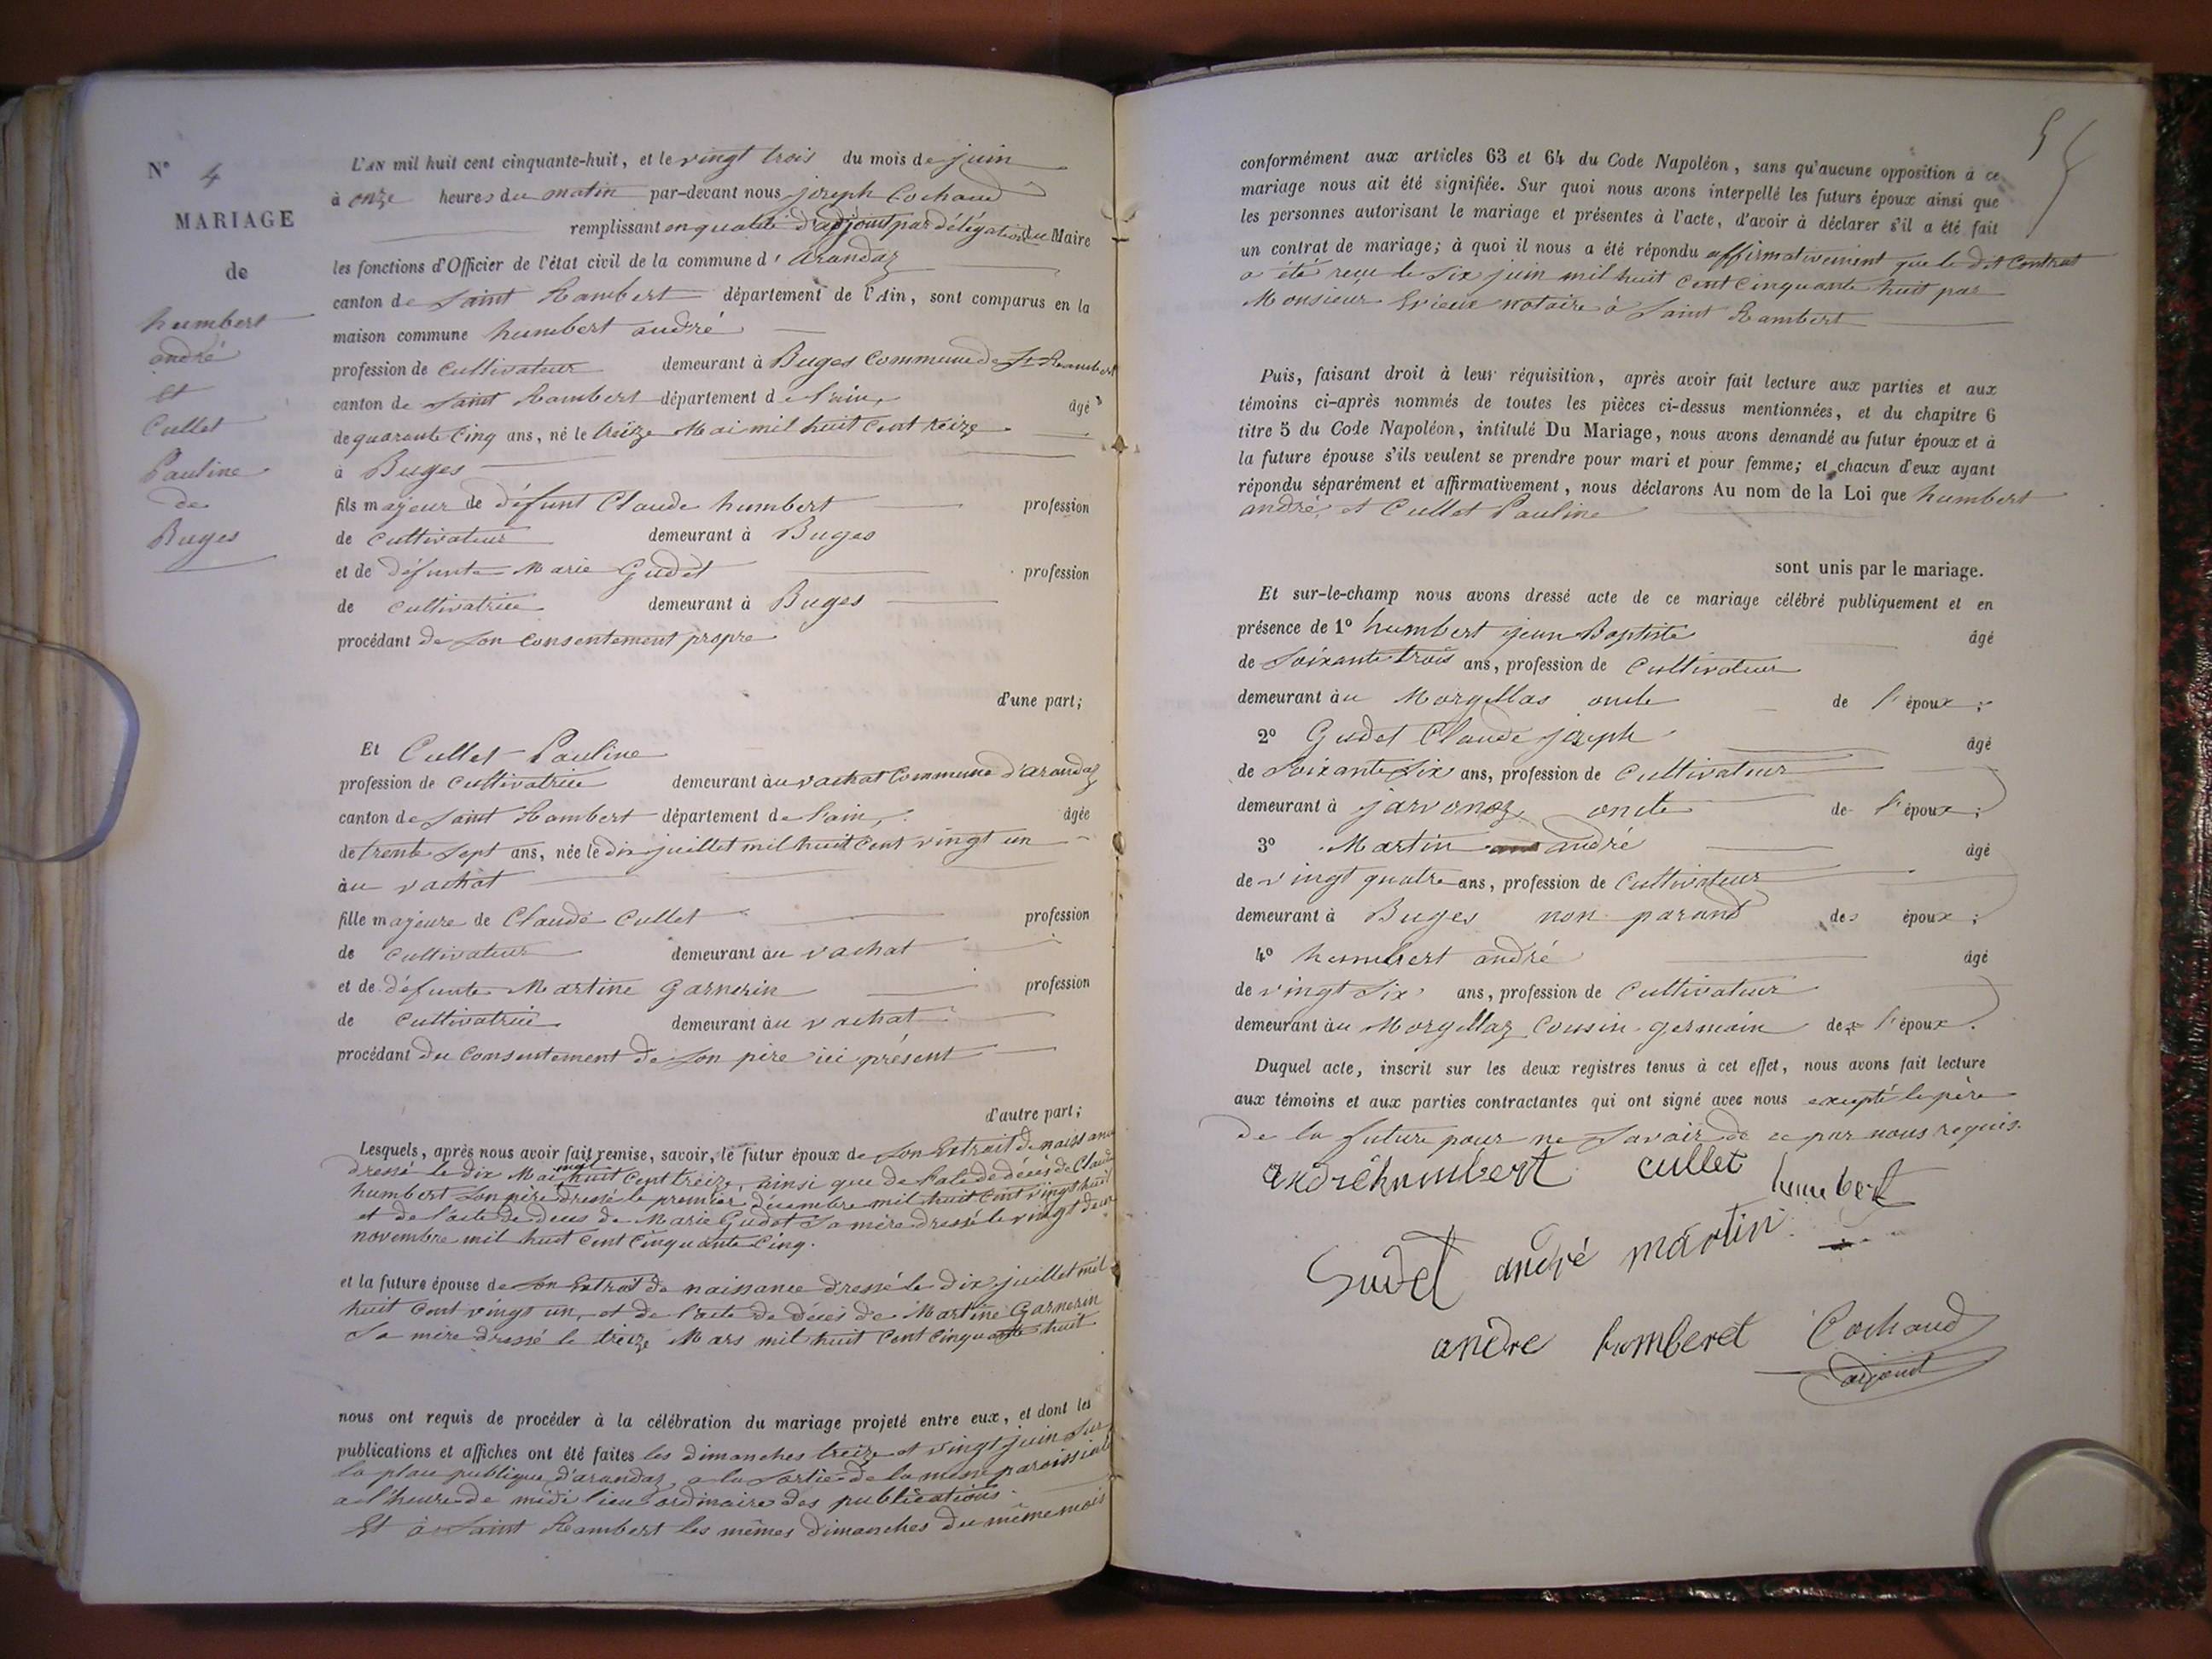 N° 4
MARIAGE
de
humbert
andré
et
Cullet
Pauline
de
Buges
L'AN mil huit cent cinquante-huit, et le vingt trois du mois de juin
à onze heures du matin par-devant nous joseph Cochaud
remplissant en qualité d'adjoint par délégation du Maire
les fonctions d'Officier de l'état civil de la commune d'arandaz
canton de Saint Rambert département de l'Ain, sont comparus en la
maison commune humbert andré
profession de Cultivateur demeurant à Buges Commune de St Rambert
canton de Saint Rambert département de l'ain, âgé
de quarante Cinq ans, né le treize Mai mil huit Cent treize
à Buges
fils majeur de défunt Claude humbert profession
de Cultivateur demeurant à Buges
et de défunte Marie Gudet profession
de Cultivatrice demeurant à Buges
procédant de Son Consentement propre
d'une part;
Et Cullet Pauline
profession de Cultivatrice demeurant àu vachat Commune d'arandaz
canton de Saint Rambert département de l'ain, âgée
de trente Sept ans, née le dix juillet mil huit Cent vingt un
àu vachat
fille majeure de Claude Cullet profession
de Cultivateur demeurant àu vachat
et de défunte Martine Garnerin profession
de Cultivatrice demeurant àu vachat
procédant du Consentement de Son père ici présent
d'autre part;
Lesquels, après nous avoir fait remise, savoir, le futur époux de Son Extrait de naissance
dressé le dix Mai mil huit Cent treize, ainsi que de l'acte de décès de Claude
humbert Son père dressé le premier décembre mil huit Cent vingt huit
et de l'acte de décès de Marie Gudet Sa mère dressé le vingt deux
novembre mil huit Cent Cinquante Cinq.
et la future épouse de Son Extrait de naissance dressé le dix juillet mil
huit Cent vingt un, et de l'acte de décès de Martine Garnerin
Sa mère dressé le treize Mars mil huit Cent Cinquante huit
nous ont requis de procéder à la célébration du mariage projeté entre eux, et dont les
publications et affiches ont été faites les dimanches treize et vingt juin Sur
la place publique d'arandaz, a la Sortie de la messe paroissiale
a l'heure de midi lieu ordinaire des publications.
Et à Saint Rambert les mêmes dimanches du même mois
5
conformément aux articles 63 et 64 du Code Napoléon, sans qu'aucune opposition à ce
mariage nous ait été signifiée. Sur quoi nous avons interpellé les futurs époux ainsi que
les personnes autorisant le mariage et présentes à l'acte, d'avoir à déclarer s'il a été fait
un contrat de mariage; à quoi il nous a été répondu affirmativement que le dit Contrat
a été reçu le Six juin mil huit Cent Cinquante huit par
Monsieur notaire à Saint Rambert
Puis, faisant droit à leur réquisition, après avoir fait lecture aux parties et aux
témoins ci-après nommés de toutes les pièces ci-dessus mentionnées, et du chapitre 6
titre 5 du Code Napoléon, intitulé Du Mariage, nous avons demandé au futur époux et à
la future épouse s'ils veulent se prendre pour mari et pour femme; et chacun d'eux ayant
répondu séparément et affirmativement, nous déclarons Au nom de la Loi que humbert
andré, et Cullet Pauline
sont unis par le mariage.
Et sur-le-champ nous avons dressé acte de ce mariage célébré publiquement et en
présence de 1° humbert jean Baptiste âgé
de Soixante trois ans, profession de Cultivateur
demeurant àu Morgellas oncle de l'époux;
2° Gudet Claude joseph âgé
de Soixante Six ans, profession de Cultivateur
demeurant à jarvonoz oncle de l'époux;
3° Martin andré âgé
de vingt quatre ans, profession de Cultivateur
demeurant à Buges non parand des époux;
4° humbert andré âgé
de vingt Six ans, profession de Cultivateur
demeurant àu Morgellaz Cousin germain de l'époux.
Duquel acte, inscrit sur les deux registres tenus à cet effet, nous avons fait lecture
aux témoins et aux parties contractantes qui ont signé avec nous excepté le père
de la future pour ne Savoir de ce par nous requis.
andré humbert cullet humbert
Gudet andré martin
andre humberet Cochaud
adjoint